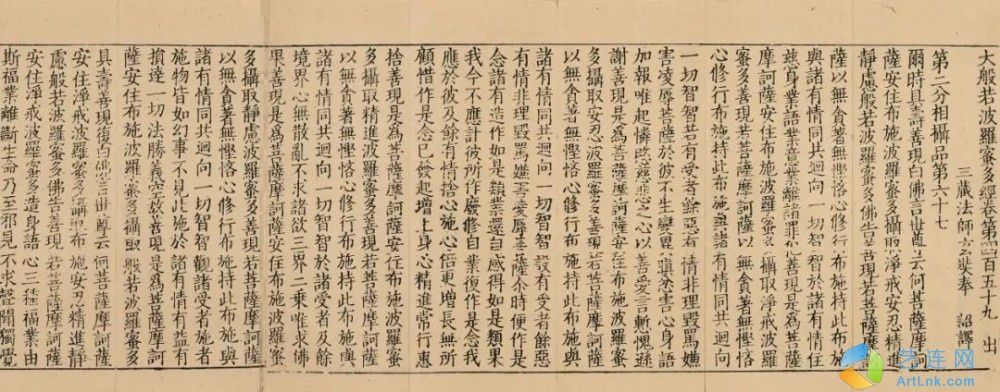 大般若波羅蜜多經卷第四百五十九　出
三藏法師玄奘奉　詔譯
第二分相攝品第六十七
爾時具壽善現白佛言世尊云何菩薩摩訶
薩安住布施波羅蜜多攝取淨戒安忍精進
靜慮般若波羅蜜多佛告善現若菩薩摩訶
薩以無貪著無慳悋心修行布施持此布施
與諸有情同共迴向一切智智於諸有情住
慈身業語業意業離諸罪犯善現是為菩薩
摩訶薩安住布施波羅蜜多攝取淨戒波羅
蜜多善現若菩薩摩訶薩以無貪著無慳悋
心修行布施持此布施與諸有情同共迴向
一切智智若有受者餘惡有情非理毀罵嫌
害凌辱菩薩於彼不生變異瞋忿害心身語
加報唯起憐愍慈悲之心以善愛言慚愧遜
謝善現是為菩薩摩訶薩安住布施波羅蜜
多攝取安忍波羅蜜多善現若菩薩摩訶薩
以無貪著無慳悋心修行布施持此布施與
諸有情同共迴向一切智智設有受者餘惡
有情非理毀罵嫌害凌辱菩薩尒時便作是
念諸有造作如是類業還自感得如是類果
我今不應計彼所作廢修自業復作是念我
應於彼及餘有情捨心施心倍更增長無所
顧惜作是念已發起增上身心精進常行惠
捨善現是為菩薩摩訶薩安住布施波羅蜜
多攝取精進波羅蜜多善現若菩薩摩訶薩
以無貪著無慳悋心修行布施持此布施與
諸有情同共迴向一切智智於諸受者及餘
境界心無散亂不求諸欲三界二乘唯求佛
果善現是為菩薩摩訶薩安住布施波羅蜜
多攝取靜慮波羅蜜多善現若菩薩摩訶薩
以無貪著無慳悋心修行布施持此布施與
諸有情同共迴向一切智智觀諸受者施者
施物皆如幻事不見此施於諸有情有益有
損達一切法勝義空故善現是為菩薩摩訶
薩安住布施波羅蜜多攝取般若波羅蜜多
具壽善現復白佛言世尊云何菩薩摩訶薩
安住淨戒波羅蜜多攝取布施安忍精進靜
慮般若波羅蜜多佛告善現若菩薩摩訶薩
安住淨戒波羅蜜多造身語心三種福業由
斯福業離斷生命乃至邪見不求聲聞獨覺
艺连网
ArtLnk.com